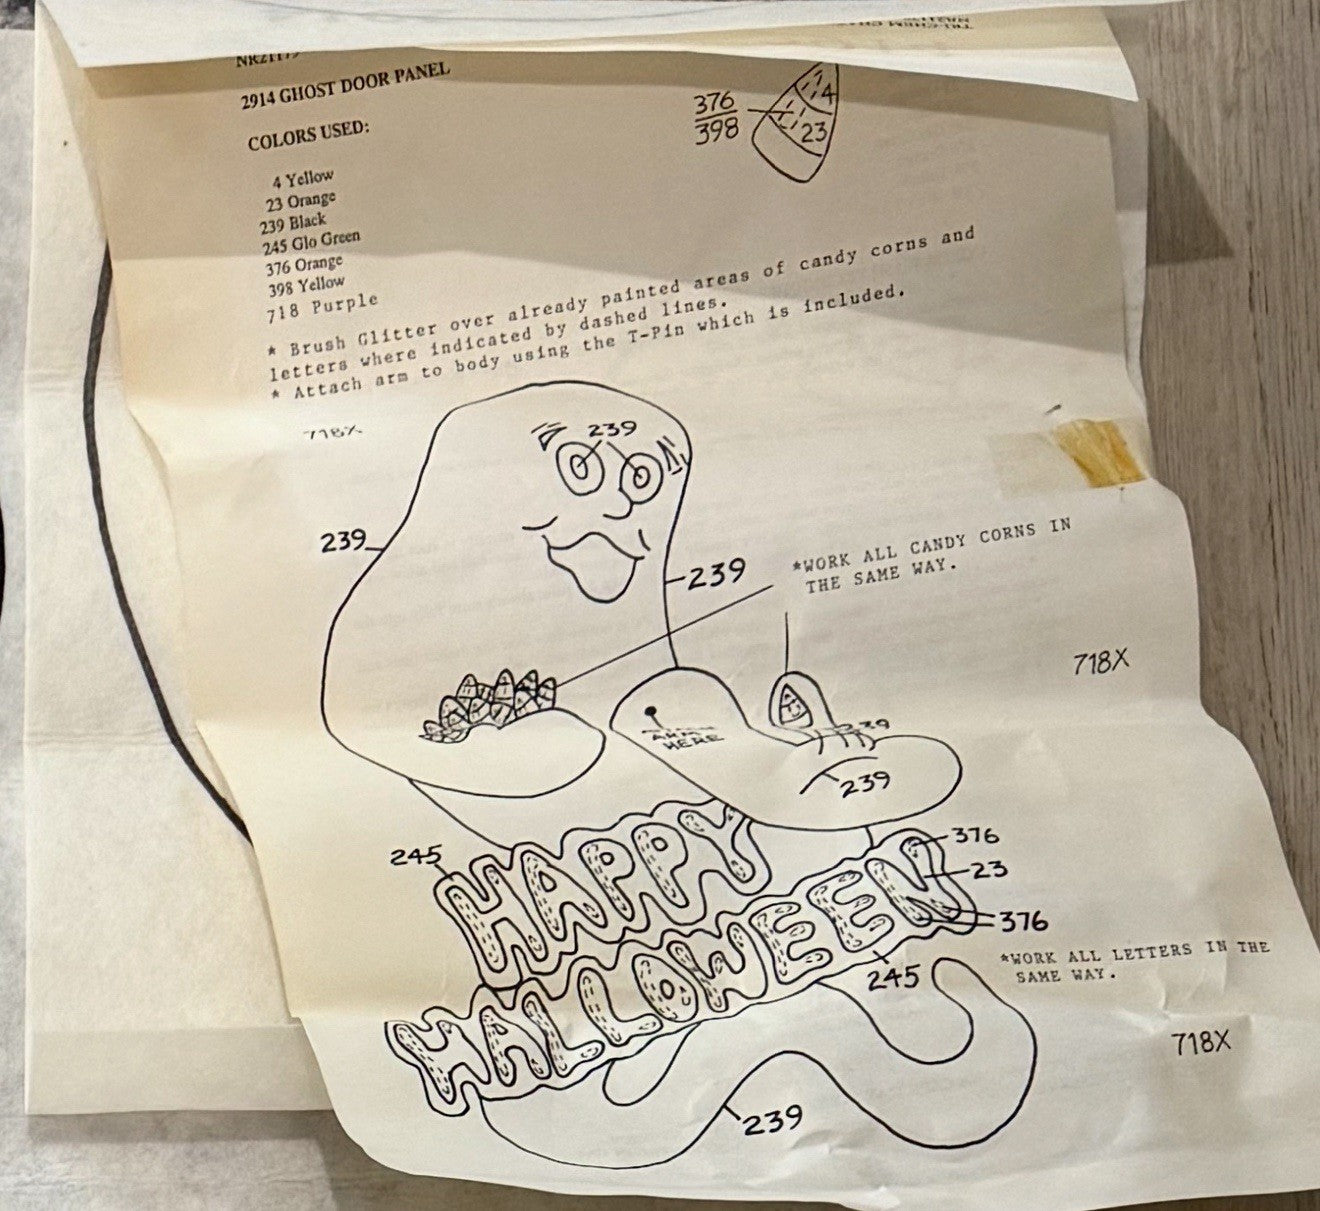 2914 GHOST DOOR PANEL
COLORS USED:
4 Yellow
23 Orange
239 Black
245 Glo Green
376 Orange
398 Yellow
718 Purple
* Brush Glitter over already painted areas of candy corns and
letters where indicated by dashed lines.
* Attach arm to body using the T-Pin which is included.
376
398
4
23
718X
239
239
239
*WORK ALL CANDY CORNS IN
THE SAME WAY.
718X
ARM
HERE
239
239
245
HAPPY
HALLOWEEN
376
23
376
245
*WORK ALL LETTERS IN THE
SAME WAY.
718X
239